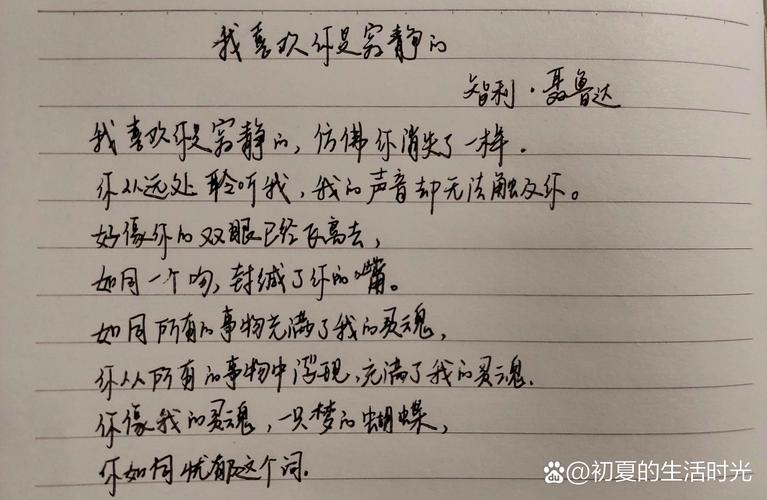 我喜欢你是寂静的
智利·聂鲁达
我喜欢你是寂静的，仿佛你消失了一样．
你从远处聆听我，我的声音却无法触及你。
好像你的双眼已经飞离去，
如同一个吻，封缄了你的嘴。
如同所有的事物充满了我的灵魂，
你从所有的事物中浮现，充满了我的灵魂．
你像我的灵魂，一只梦的蝴蝶，
你如同忧郁这个词．
@初夏的生活时光